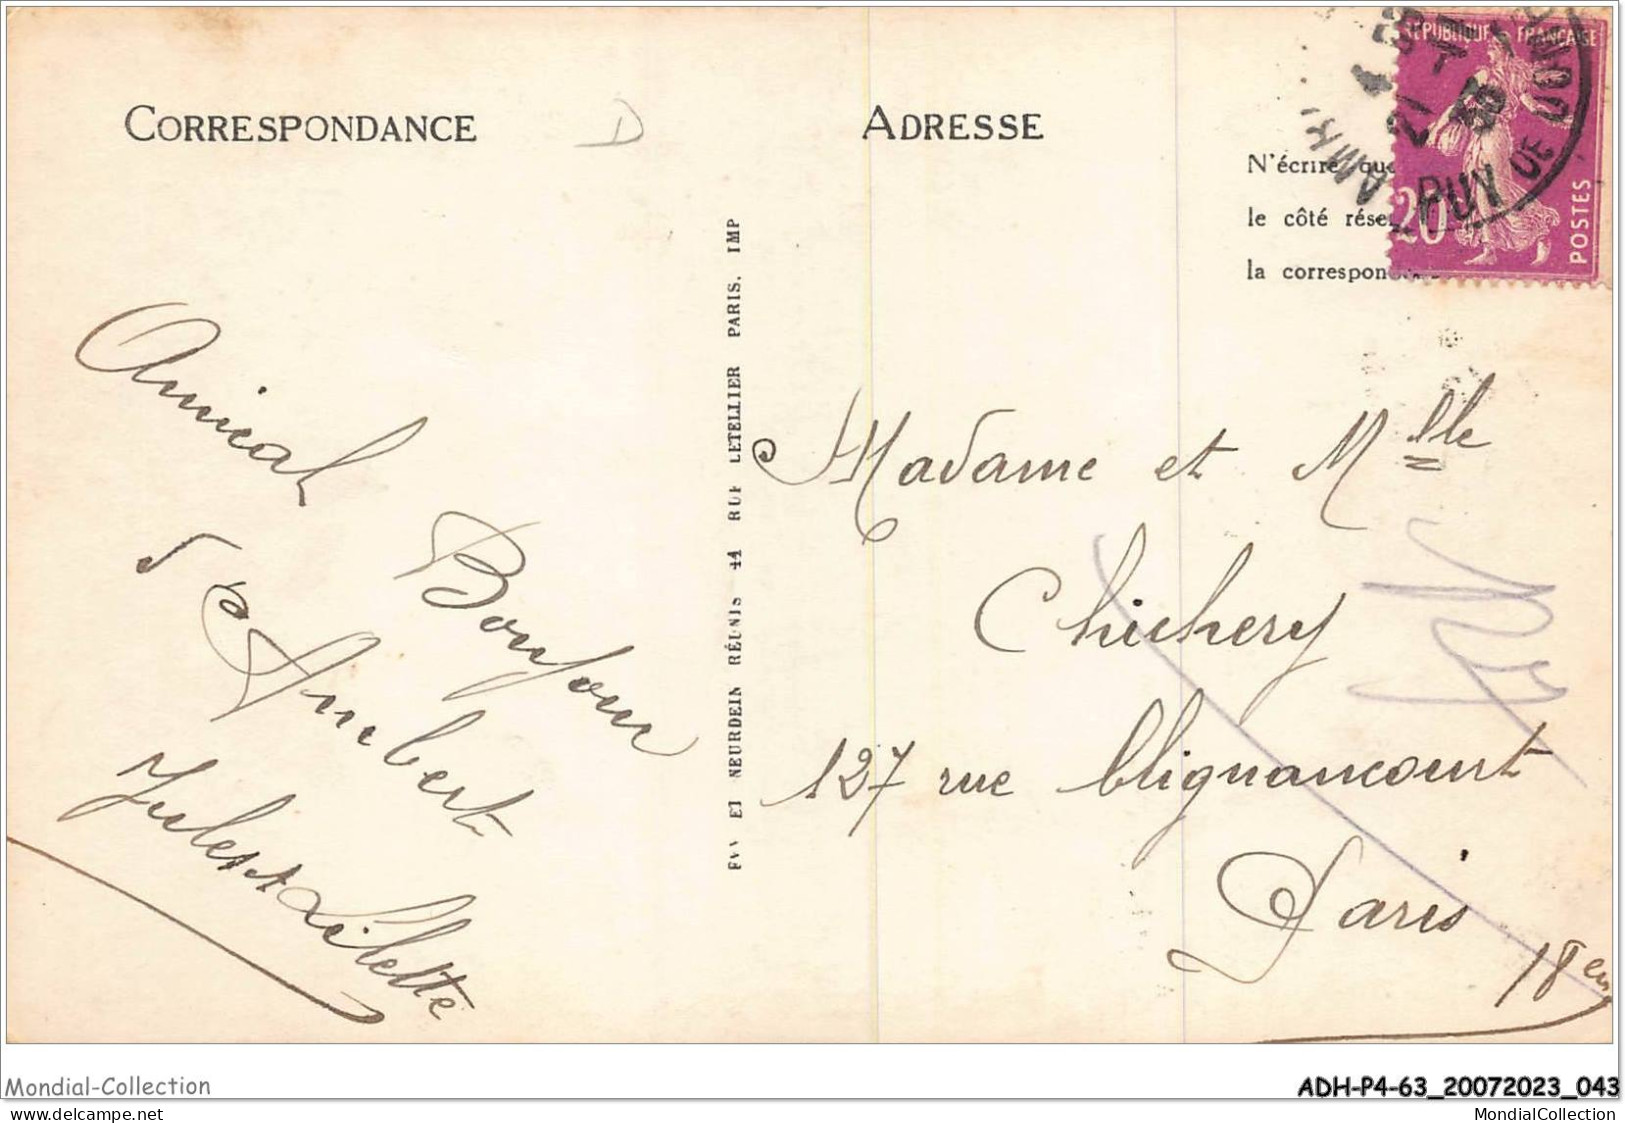 CORRESPONDANCE
D
ADRESSE
N'écrire que
le côté rése
la correspon
RÉPUBLIQUE FRANÇAISE
20
POSTES
21 - 4
36
PUY DE DOME
NEURDEIN RÉUNIS 44 RUE LETELLIER PARIS. IMP
Amical
Bonjour
d'Ambert
Jules et Lilette
Madame et Mlle
Chichery
127 rue Clignancourt
Paris
18em
Mondial-Collection
ADH-P4-63_20072023_043
www.delcampe.net
MondialCollection